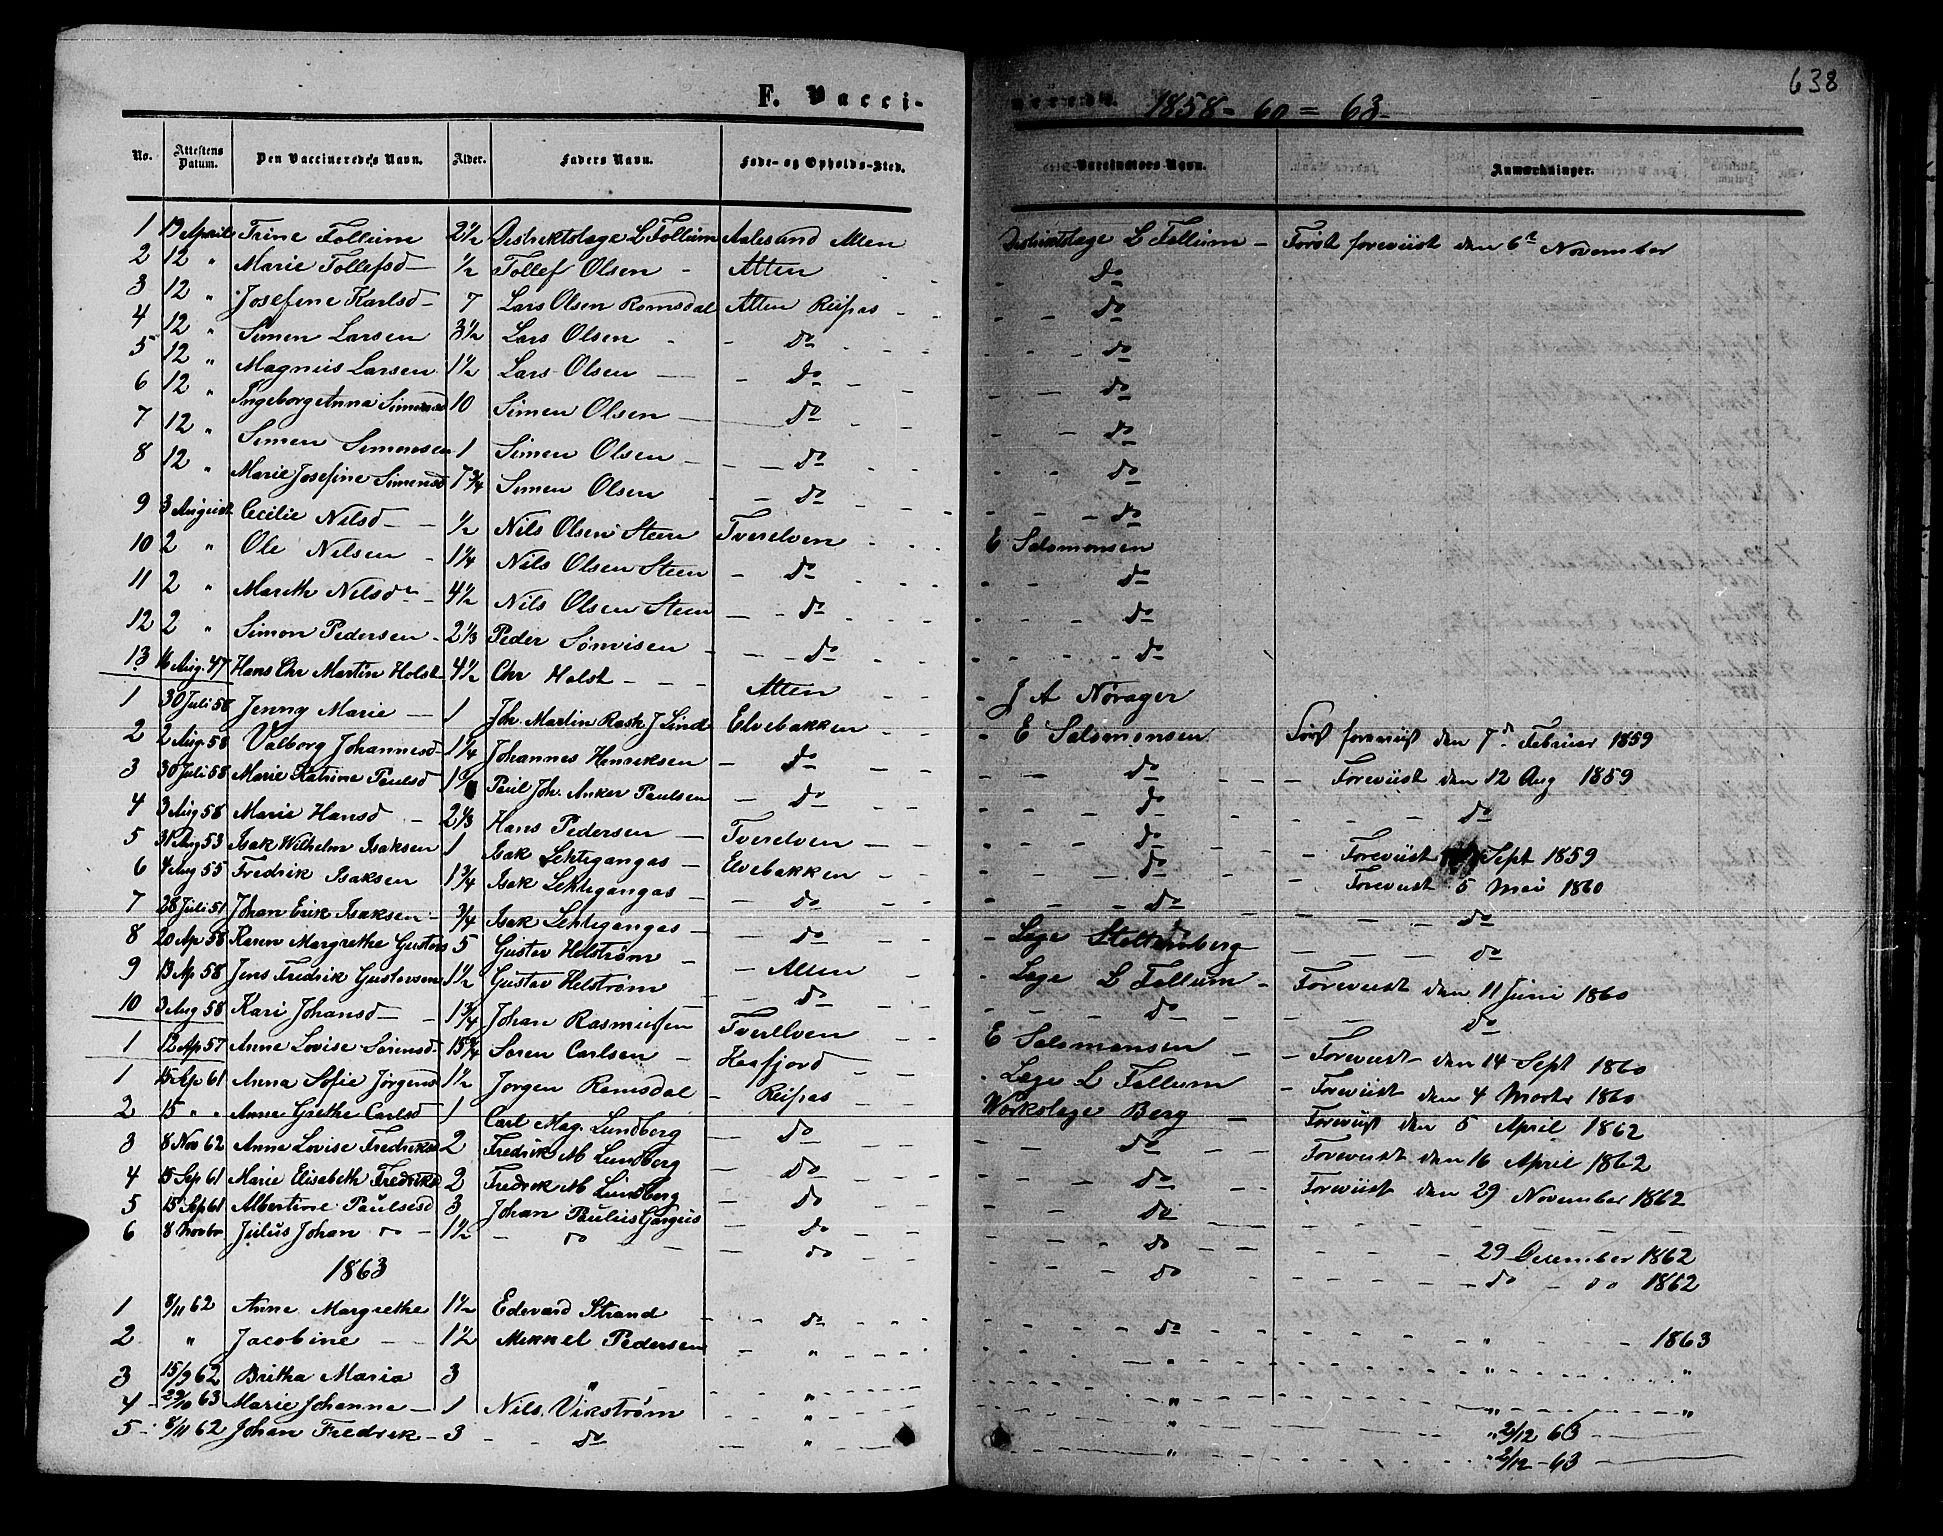 638
F. Vacci-
nerede. 1858-60=63-
No. Attestens Datum. Den Vaccineredes Navn. Alder. Faders Navn. Føde- og Opholds-Sted. Vaccinators Navn. Anmærkninger.
1 12 April Trine Follum 2½ Distriktslæge L Follum Aalesund Alten Distriktslæge L Follum - Først foreviist den 6te November
2 12 " Marie Tollefsd - ½ Tollef Olsen - Alten do
3 12 " Josefine Karlsd - 7 Lars Olsen Romsdal Alten Reipas - - do
4 12 " Simen Larsen 3½ Lars Olsen - do - do
5 12 " Magnus Larsen 1½ Lars Olsen - do - do
6 12 " Ingeborg Anna Simensd 10 Simen Olsen - do - do
7 12 " Simen Simonsen 1 Simen Olsen - do - do
8 12 " Marie Josefine Simensd 7¾ Simen Olsen - do - do
9 3 August Cecilie Nilsd - ½ Nils Olsen Steen Tverelven - E Salomonsen
10 2 " Ole Nilsen - 1¼ Nils Olsen Steen - do - do
11 2 " Mareth Nilsdr - 4½ Nils Olsen Steen - do - do
12 2 " Simon Pedersen - 2⅓ Peder - do - do
13 16 Aug. 47 Hans Chr Martin Holst 4½ Chr Holst - Alten - J A Nørager
1 30 Juli 58 Jenny Marie - 1 Joh. Martin Rask J Lind Elvebakken - E Salomonsen Først foreviist den 7d Februar 1859
2 2 Aug. 58 Valborg Johannesd - 1¼ Johannes Henriksen - do - do - Foreviist den 12 Aug 1859
3 30 Juli 58 Marie Katrine Paulsd Paul Joh. Anker Paulsen - do - do - do
4 3 Aug 58 Marie Hansd - 2⅓ Hans Pedersen - Tverelven - do - Foreviist Sept 1859
5 31 Aug 53 Isak Wilhelm Isaksen 1 Isak Lehtigangas - Elvebakken - do - Foreviist 5 Mai 1860
6 4 Aug 55 Fredrik Isaksen 1¾ Isak Lehtigangas - do - do - do
7 28 Juli 51 Johan Erik Isaksen - ¾ Isak Lehtigangas - do - do - do
8 20 Ap 58 Karen Margrethe Gustavs 5 Gustav Helstrøm - Alten - Læge Stoltenberg - Foreviist den 11 Juni 1860
9 13 Ap 58 Jens Fredrik Gustavsen 1½ Gustav Helstrøm - do - Læge L Follum - do
10 3 Aug 58 Kari Johansd - 1¾ Johan Rasmussen Tverelven - do - Foreviist den 14 Sept 1860
1 12 Ap 57 Anne Lovise Sørensd. Søren Carlsen - - E Salomonsen - Foreviist den 4 Marts 1860
1 15 Sep 61 Anna Sofie Jørgensd 1½ Jørgen Romsdal - Reipas - Læge L Follum - Foreviist den 5 April 1862
2 15 " " Anne Grethe Carlsd 1 Carl Mag. Lundberg - do - Berg - Foreviist den 16 April 1862
3 8 Nov 62 Anne Lovise Fredriksd 2 Fredrik M Lundberg - do - do - Foreviist den 29 November 1862
4 15 Sep 61 Marie Elisabeth Fredriksd 2 Fredrik M Lundberg - do - do
5 15 Sep 61 Albertine Paulsesd 3 Johan Paulus - do - do - 29 December 1862
6 8 Novbr Julius Johan do - 1½ - do - do - do - do - do 1862
1863
1 8/11 62 Anne Margrethe 1½ Edevard Strand - do - do - " - 1863
2 " Jacobine - 1½ Mikkel Pedersen - " - " - " - "
3 15/9 62 Britha Maria 3 " - " - " - " - "
4 - 29/10 63 Marie Johanna - 1 Nils Vikstrøm - " - " - " 2/12 63 -
5 - 8/11 62 Johan Fredrik - 3 - do - " - " - " 2/12 - 63 -